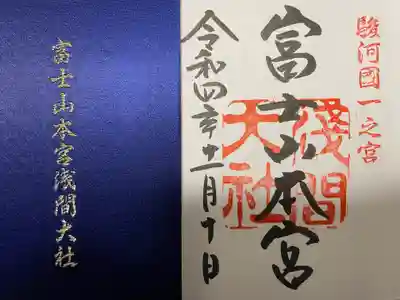 富士山本宮浅間大社
駿河國一之宮
富士山本宮
淺間大社
令和四年十一月十日